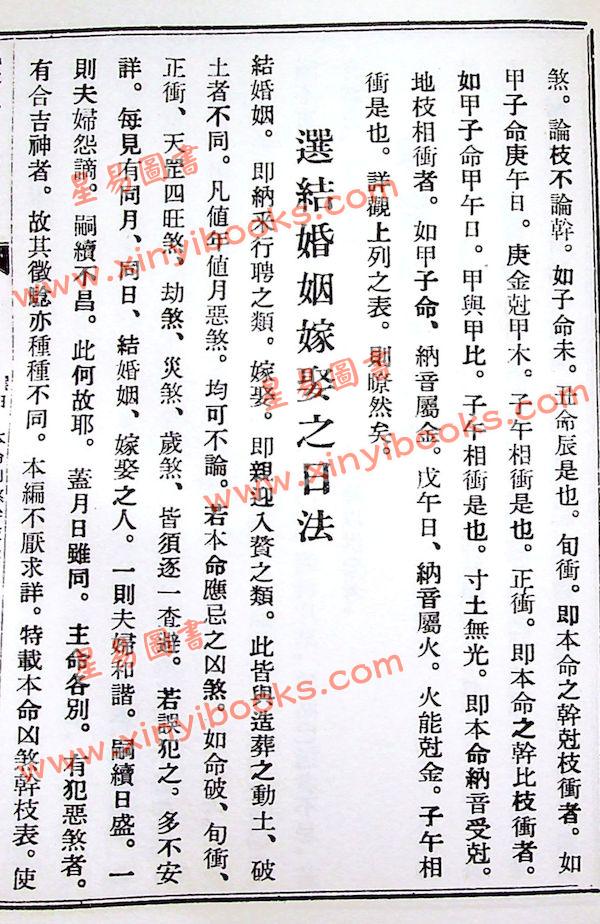 煞。論枝不論幹。如子命未。丑命辰是也。旬衝。即本命之幹尅枝衝者。如
甲子命庚午日。庚金尅甲木。子午相衝是也。正衝。即本命之幹比枝衝者。
如甲子命甲午日。甲與甲比。子午相衝是也。寸土無光。即本命納音受尅。
地枝相衝者。如甲子命、納音屬金。戊午日、納音屬火。火能尅金。子午相
衝是也。詳觀上列之表。則瞭然矣。
選結婚姻嫁娶之日法
結婚姻。即納采行聘之類。嫁娶。即親迎入贅之類。此皆與造葬之動土、破
土者不同。凡值年值月惡煞。均可不論。若本命應忌之凶煞。如命破、旬衝、
正衝、天罡四旺煞、劫煞、災煞、歲煞、皆須逐一查避。若誤犯之。多不安
詳。每見有同月、同日、結婚姻、嫁娶之人。一則夫婦和諧。嗣續日盛。一
則夫婦怨謫。嗣續不昌。此何故耶。蓋月日雖同。主命各別。有犯惡煞者。
有合吉神者。故其徵驗亦種種不同。本編不厭求詳。特載本命凶煞幹枝表。使
星易圖書
www.xinyibooks.com
星易圖書
www.xinyibooks.com
星易圖書
www.xinyibooks.com